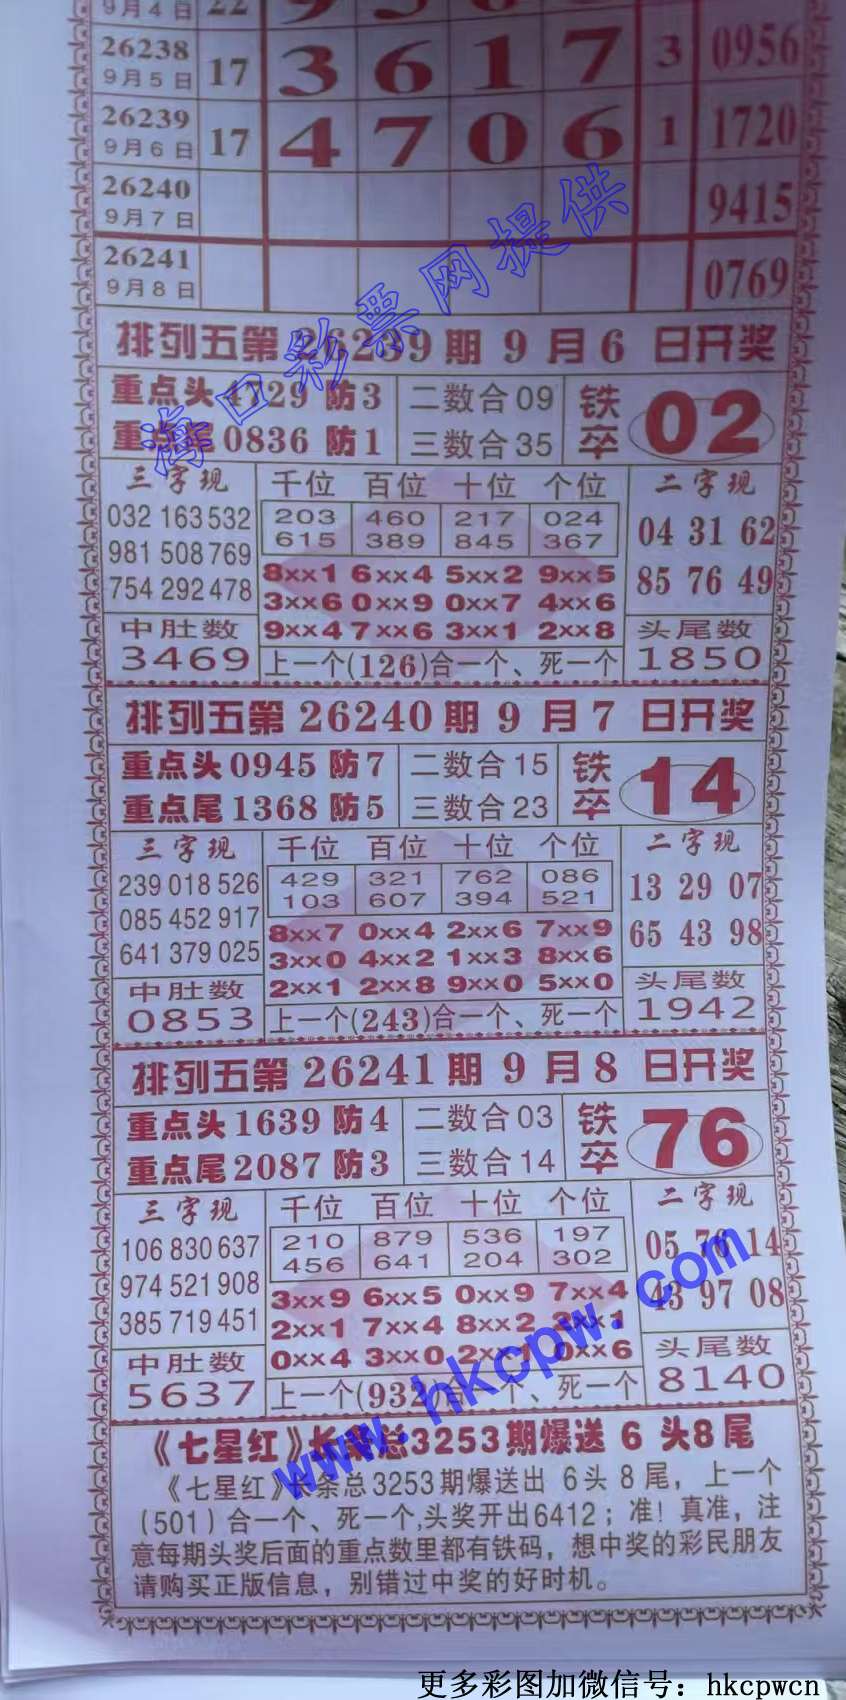 9月4日 22
26238
9月5日 17 3 6 1 7 3 0956
26239
9月6日 17 4 7 0 6 1 1720
26240
9月7日 9415
26241
9月8日 0769
排列五第26239期9月6日开奖
重点头4729防3 二数合09 铁卒 02
重点尾0836防1 三数合35
三字现 千位 百位 十位 个位 二字现
032 163 532 203 460 217 024 04 31 62
981 508 769 615 389 845 367
754 292 478 8xx1 6xx4 5xx2 9xx5 85 76 49
3xx6 0xx9 0xx7 4xx6
中肚数 9xx4 7xx6 3xx1 2xx8 头尾数
3469 上一个(126)合一个、死一个 1850
排列五第26240期9月7日开奖
重点头0945防7 二数合15 铁卒 14
重点尾1368防5 三数合23
三字现 千位 百位 十位 个位 二字现
239 018 526 429 321 762 086 13 29 07
085 452 917 103 607 394 521
641 379 025 8xx7 0xx4 2xx6 7xx9 65 43 98
3xx0 4xx2 1xx3 8xx6
中肚数 2xx1 2xx8 9xx0 5xx0 头尾数
0853 上一个(243)合一个、死一个 1942
排列五第26241期9月8日开奖
重点头1639防4 二数合03 铁卒 76
重点尾2087防3 三数合14
三字现 千位 百位 十位 个位 二字现
106 830 637 210 879 536 197 05 76 14
974 521 908 456 641 204 302
385 719 451 3xx9 6xx5 0xx9 7xx4 43 97 08
2xx1 7xx4 8xx2
中肚数 0xx4 3xx0 2xx1 0xx6 头尾数
5637 上一个(932)合一个、死一个 8140
《七星红》长条总3253期爆送6头8尾
《七星红》长条总3253期爆送出6头8尾，上一个
(501)合一个、死一个,头奖开出6412；准！真准，注
意每期头奖后面的重点数里都有铁码，想中奖的彩民朋友
请购买正版信息，别错过中奖的好时机。
海口彩票网提供
www.hkcpw.com
更多彩图加微信号：hkcpwcn